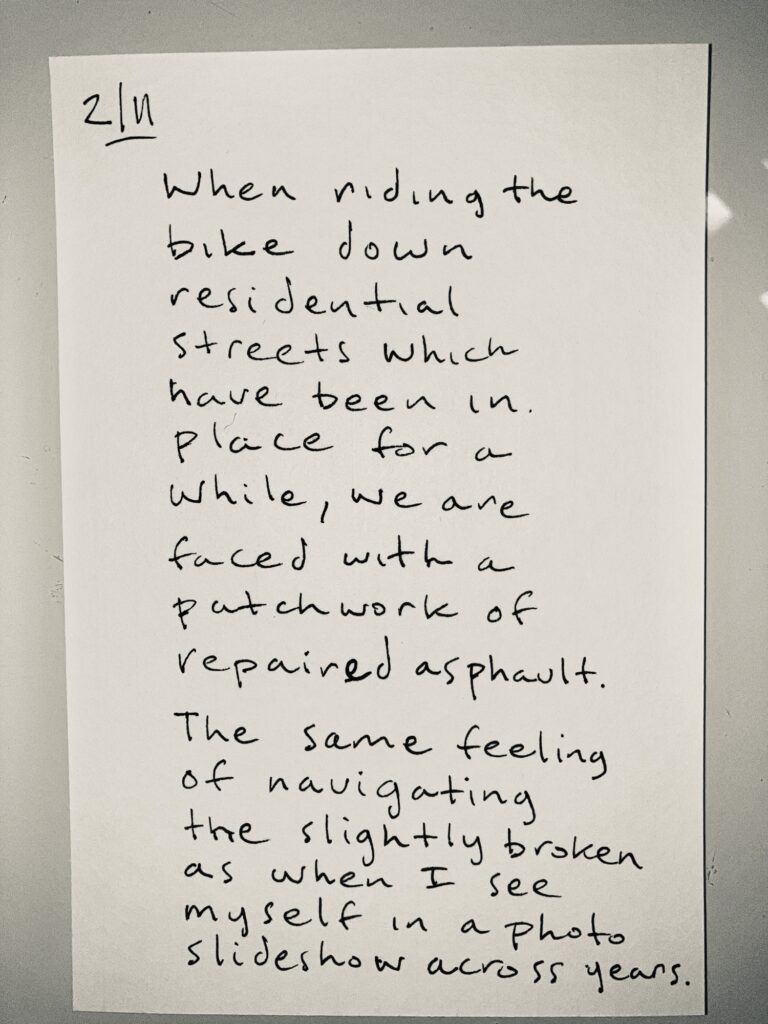 2/11
When riding the
bike down
residential
streets which
have been in.
place for a
while, we are
faced with a
patchwork of
repaired asphault.
The same feeling
of navigating
the slightly broken
as when I see
myself in a photo
slideshow across years.